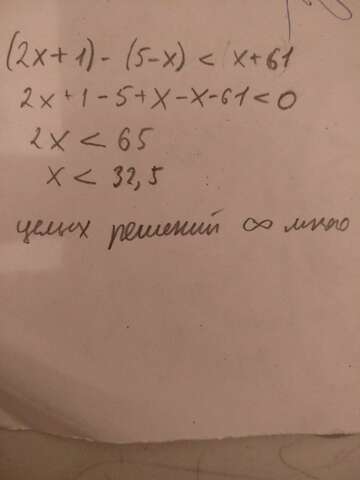 (2x+1) - (5-x) < x+61
2x+1-5+x-x-61<0
2x < 65
x < 32,5
целых решений ∞ много